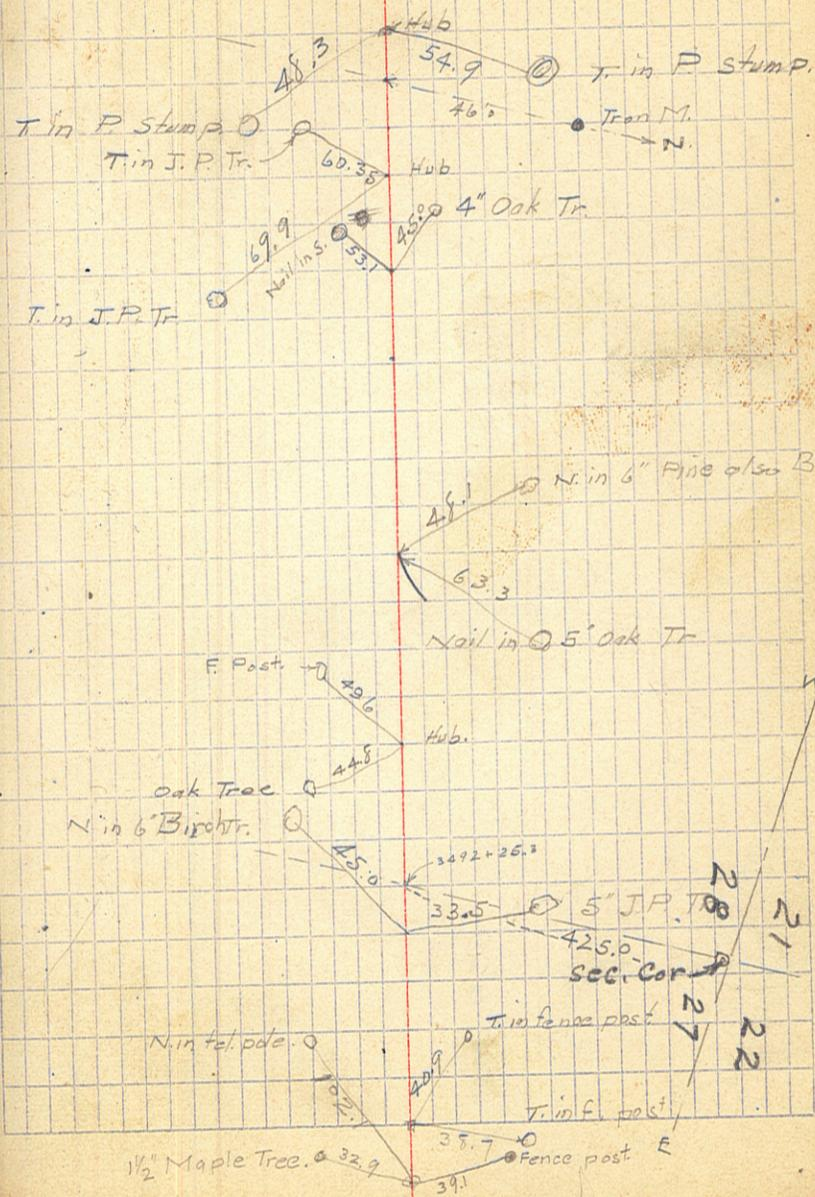 Hub
48.3
54.9
T. in P. Stump.
46.0
Iron M.
N.
T in P. Stump
T. in J. P. Tr.
60.35
Hub
4" Oak Tr.
45.0
69.9
Nail in S.
53.1
T. in J.P. Tr
N. in 6" Pine also B
48.1
63.3
Nail in 5" Oak Tr
F. Post.
49.6
Hub.
44.8
Oak Tree
N in 6" Birch Tr.
45.0
3492+25.3
33.5
5" J.P. Tr
425.0
Sec. Cor
28
21
27
22
N. in tel. pole.
T. in fence post
102.1
40.9
T. in f. post
38.7
E
1½" Maple Tree.
32.9
Fence post
39.1